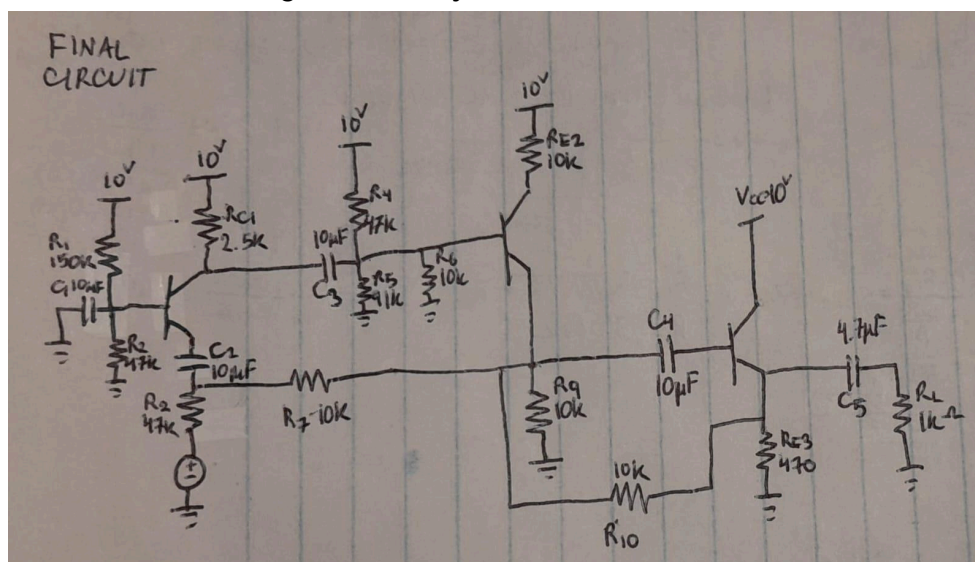 FINAL
CIRCUIT
10V
R1
150K
C1 10µF
R2
47K
10V
RC1
2.5K
C2
10µF
R2
47K
R7 10K
10V
R4
47K
10µF
C3
R5
91K
R6
10K
10V
RE2
10K
R9
10K
10K
R10
C4
10µF
Vcc10V
RE3
470
4.7µF
C5
RL
1KΩ